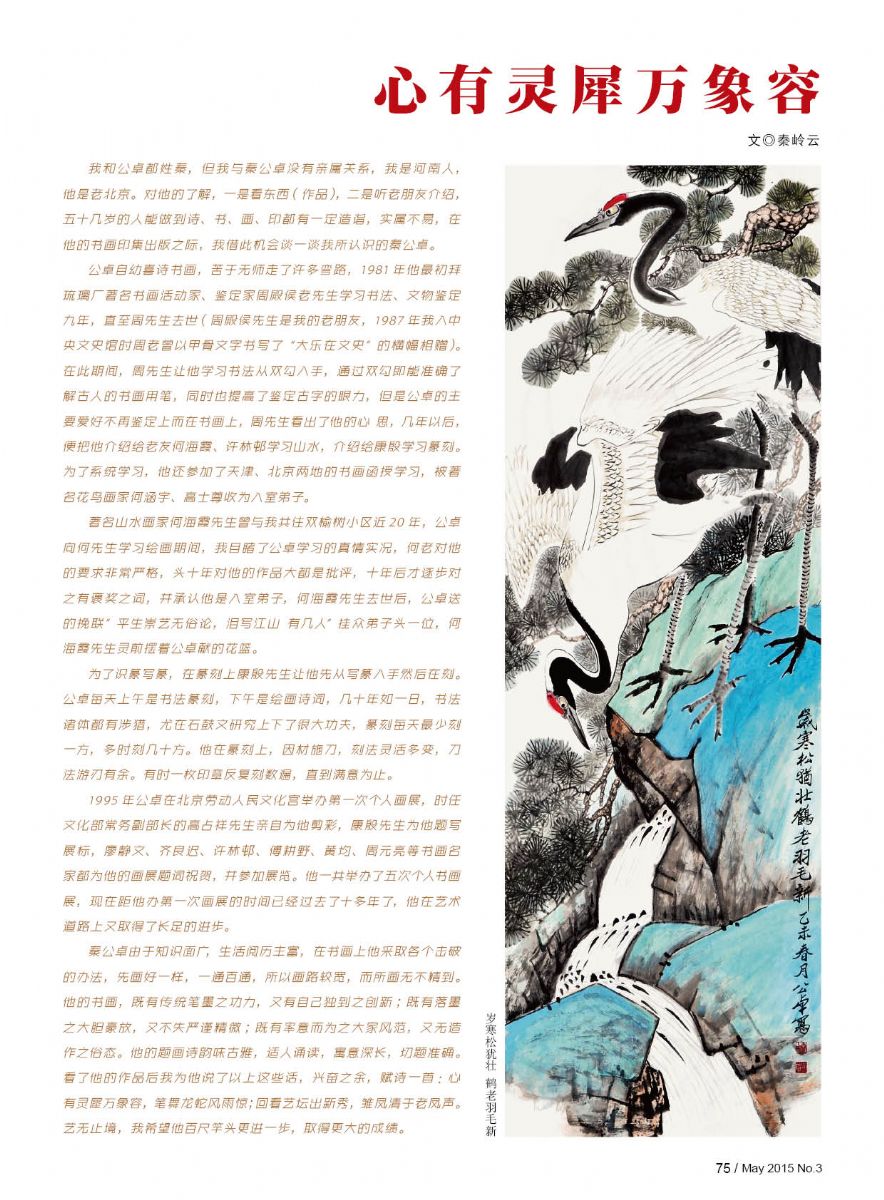 心有灵犀万象容
文◎秦岭云
我和公卓都姓秦，但我与秦公卓没有亲属关系，我是河南人，
他是老北京。对他的了解，一是看东西（作品），二是听老朋友介绍，
五十几岁的人能做到诗、书、画、印都有一定造诣，实属不易，在
他的书画印集出版之际，我借此机会谈一谈我所认识的秦公卓。
公卓自幼喜诗书画，苦于无师走了许多弯路，1981年他最初拜
琉璃厂著名书画活动家、鉴定家周殿侯老先生学习书法、文物鉴定
九年，直至周先生去世（周殿侯先生是我的老朋友，1987年我入中
央文史馆时周老曾以甲骨文字书写了“大乐在文史”的横幅相赠）。
在此期间，周先生让他学习书法从双勾入手，通过双勾即能准确了
解古人的书画用笔，同时也提高了鉴定古字的眼力，但是公卓的主
要爱好不再鉴定上而在书画上，周先生看出了他的心 思，几年以后，
便把他介绍给老友何海霞、许林邨学习山水，介绍给康殷学习篆刻。
为了系统学习，他还参加了天津、北京两地的书画函授学习，被著
名花鸟画家何涵宇、高士尊收为入室弟子。
著名山水画家何海霞先生曾与我共住双榆树小区近20年，公卓
向何先生学习绘画期间，我目睹了公卓学习的真情实况，何老对他
的要求非常严格，头十年对他的作品大都是批评，十年后才逐步对
之有褒奖之词，并承认他是入室弟子，何海霞先生去世后，公卓送
的挽联”平生崇艺无俗论，泪写江山 有几人”挂众弟子头一位，何
海霞先生灵前摆着公卓献的花篮。
为了识篆写篆，在篆刻上康殷先生让他先从写篆入手然后在刻。
公卓每天上午是书法篆刻，下午是绘画诗词，几十年如一日，书法
诸体都有涉猎，尤在石鼓文研究上下了很大功夫，篆刻每天最少刻
一方，多时刻几十方。他在篆刻上，因材施刀，刻法灵活多变，刀
法游刃有余。有时一枚印章反复刻数遍，直到满意为止。
1995年公卓在北京劳动人民文化宫举办第一次个人画展，时任
文化部常务副部长的高占祥先生亲自为他剪彩，康殷先生为他题写
展标，廖静文、齐良迟、许林邨、傅耕野、黄均、周元亮等书画名
家都为他的画展题词祝贺，并参加展览。他一共举办了五次个人书画
展，现在距他办第一次画展的时间已经过去了十多年了，他在艺术
道路上又取得了长足的进步。
秦公卓由于知识面广，生活阅历丰富，在书画上他采取各个击破
的办法，先画好一样，一通百通，所以画路较宽，而所画无不精到。
他的书画，既有传统笔墨之功力，又有自己独到之创新；既有落墨
之大胆豪放，又不失严谨精微；既有率意而为之大家风范，又无造
作之俗态。他的题画诗韵味古雅，适人诵读，寓意深长，切题准确。
看了他的作品后我为他说了以上这些话，兴奋之余，赋诗一首：心
有灵犀万象容，笔舞龙蛇风雨惊；回看艺坛出新秀，雏凤清于老凤声。
艺无止境，我希望他百尺竿头更进一步，取得更大的成绩。
歲寒松猶壯鶴老羽毛新 乙未春月公卓寫
岁寒松犹壮 鹤老羽毛新
75 / May 2015 No.3